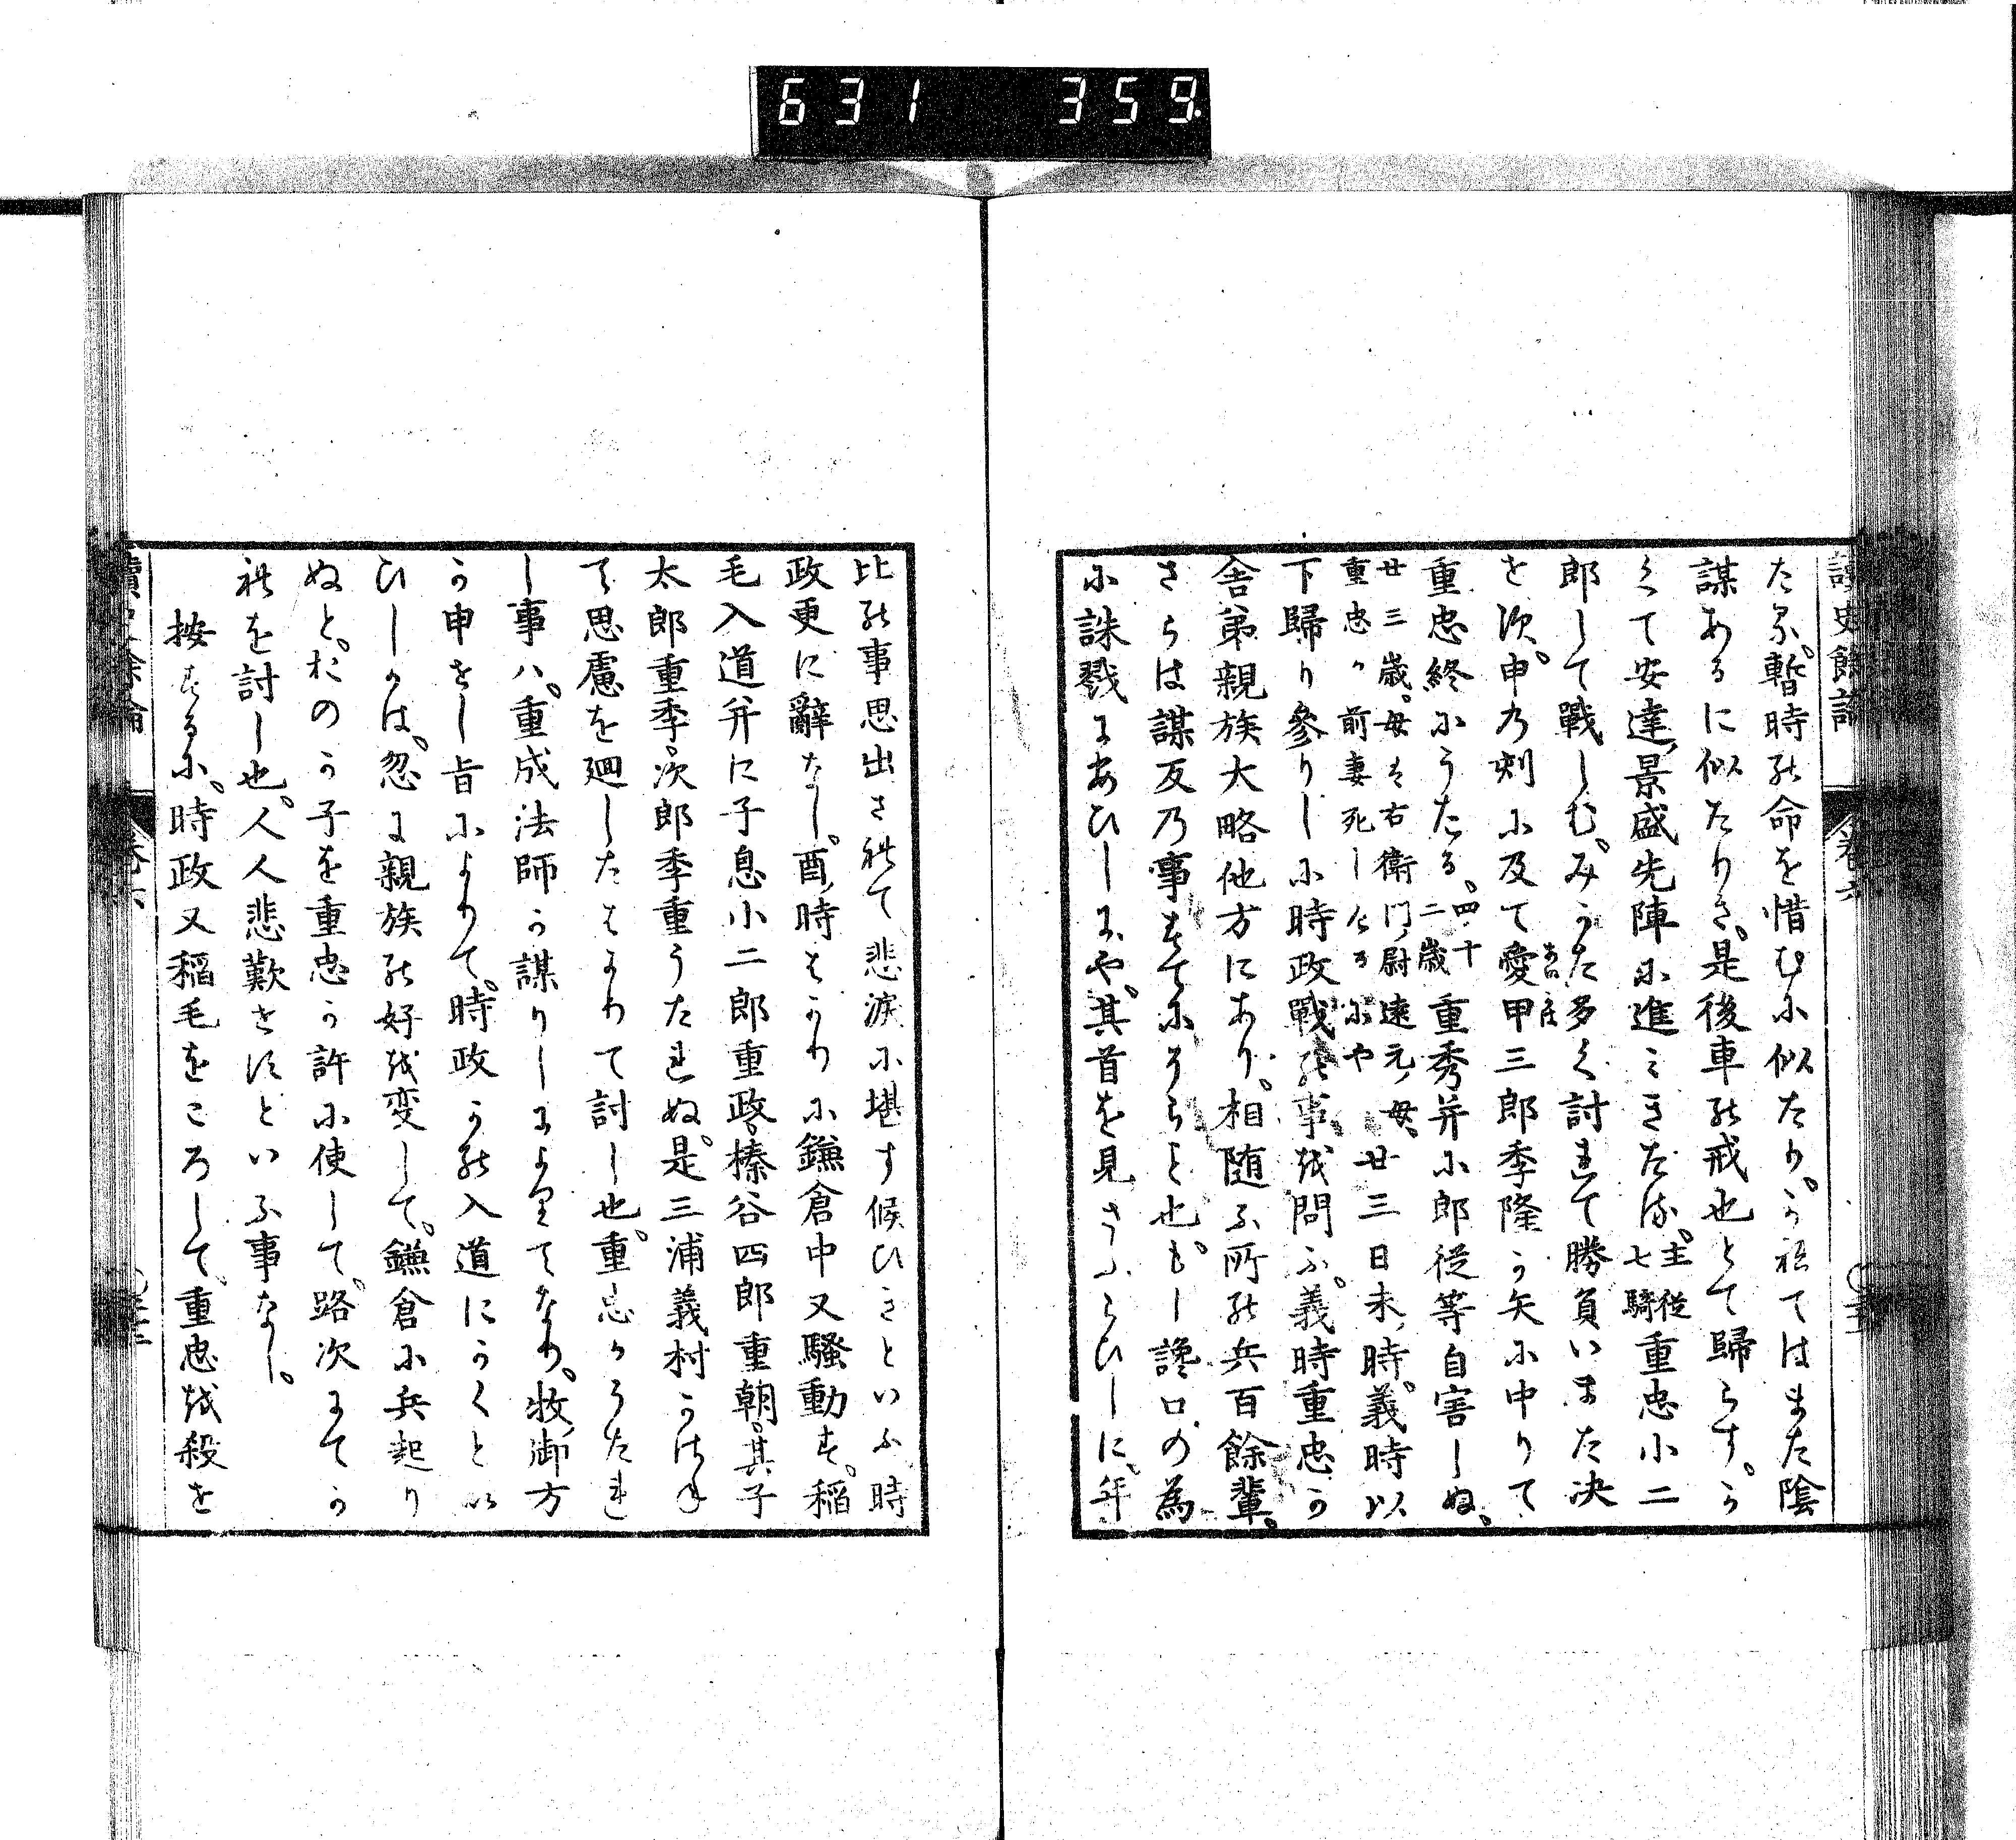 631 359
讀史餘論 卷六
たるか暫時の命を惜むに似たり。かねてはまた陰
謀あるに似たりき。是後車の戒也とて歸らす。か
くて安達景盛先陣に進ミきたる。主從七騎重忠小二
郎して戰しむ。みかた多く討れて勝負いまた決
せす。申の刻に及て愛甲三郎季隆か矢に中りて
重忠終にうたる。四十二歳重秀并に郎從等自害しぬ。
廿三歳。母は右衛門尉遠元ノ女。重忠か前妻死しけるにや廿三日未ノ時。義時以
下歸り參りしに時政戰の事を問ふ。義時重忠か
舍弟親族大略他方にあり。相隨ふ所の兵百餘輩。
さらは謀反の事すてにそらこと也。もし讒口の為
に誅戮にあひしにや。其首を見さふらひしに。年
比の事思出されて悲涙に堪す候ひきといふ時
政更に辭なし。酉ノ時はかりに鎌倉中又騷動す。稲
毛入道并に子息小二郎重政。榛谷四郎重朝。其子
太郎重季。次郎季重うたれぬ。是三浦義村かはね
て思慮を廻したはかりて討し也。重忠かうたれ
し事ハ。重成法師か謀りしによりてなり。牧ノ御方
か申せし旨によりて。時政かの入道にかくとい
ひしかは。忽に親族の好を変して。鎌倉に兵起り
ぬと。おのか子を重忠か許に使して。路次にてか
れを討し也。人人悲歎せすといふ事なし。
按するに。時政又稲毛をころして。重忠を殺せ
讀史餘論 卷六